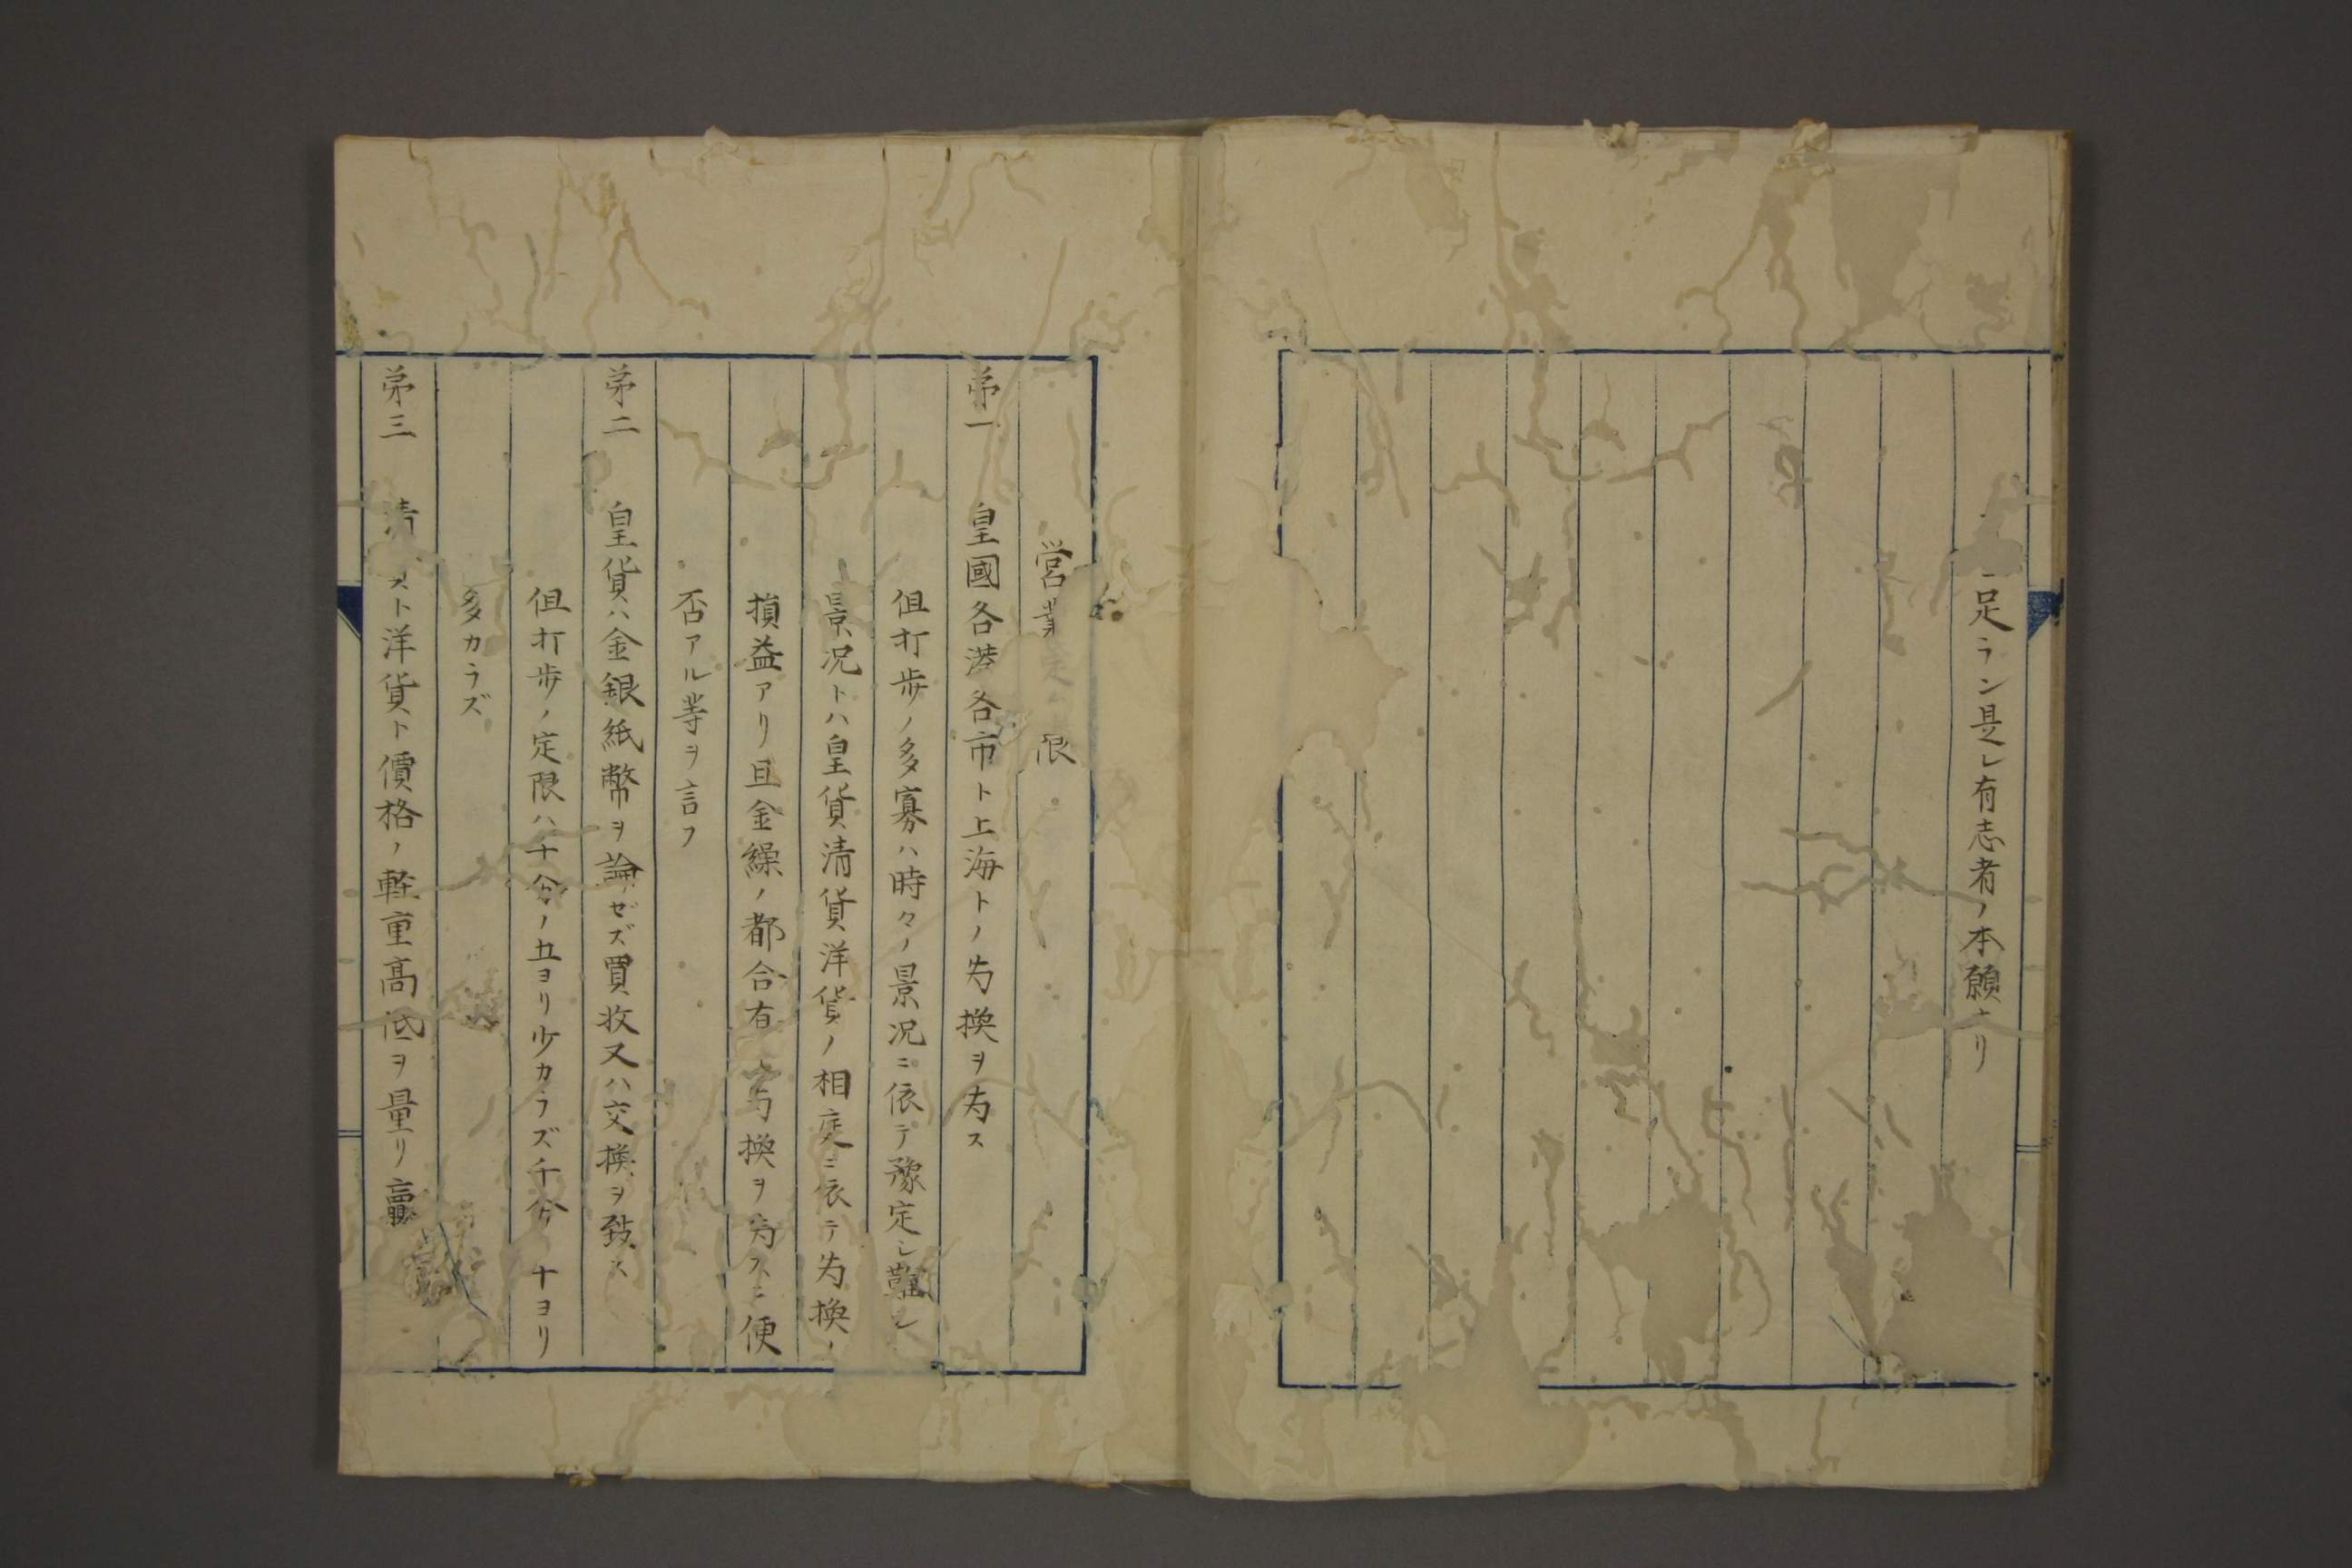 足ラン是レ有志者ノ本願ナリ
営業定限
第一 皇國各港各市ト上海トノ為換ヲ為ス
但打歩ノ多寡ハ時々ノ景況ニ依テ豫定シ難シ
景况トハ皇貨清貨洋貨ノ相庭ニ依テ為換ノ
損益アリ且金繰ノ都合有 為換ヲ為スニ便
否アル等ヲ言フ
第二 皇貨ハ金銀紙幣ヲ論ゼズ買收又ハ交換ヲ致ス
但打歩ノ定限ハ十分ノ五ヨリ少カラズ千分 十ヨリ
多カラズ
第三 清 スト洋貨ト價格ノ軽重高低ヲ量リ賣